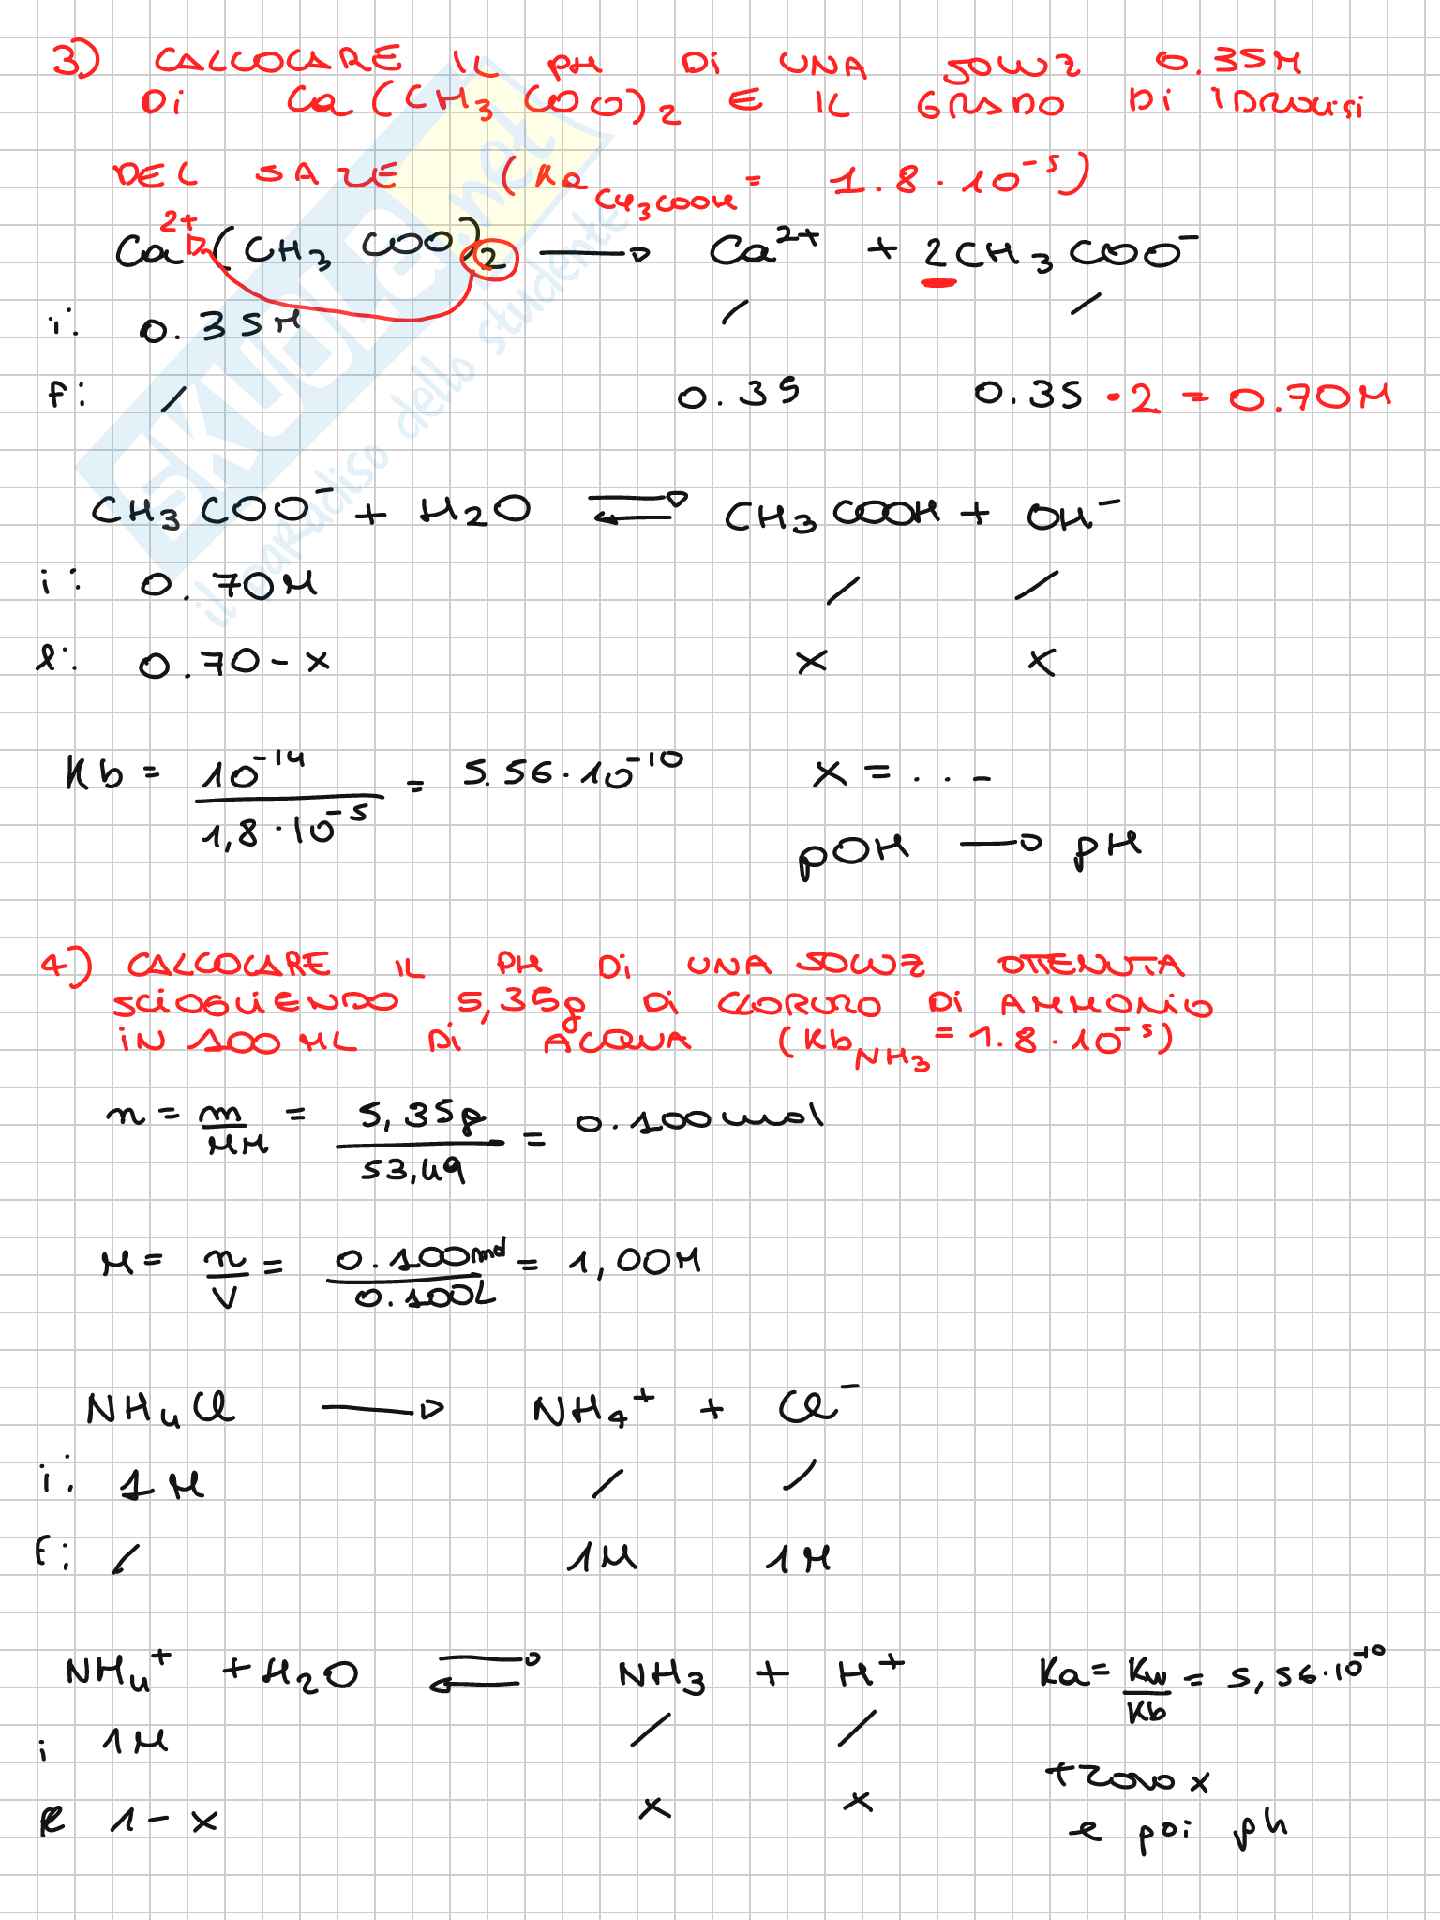 3) CALCOLARE IL PH DI UNA SOLUZ 0.35M
DI Ca(CH3COO)2 E IL GRADO DI IDROLISI
DEL SALE (Ka CH3COOH = 1.8·10^-5)
Ca^2+(CH3COO)2 → Ca^2+ + 2CH3COO^-
i: 0.35M / /
F: / 0.35 0.35 ·2 = 0.70M
CH3COO^- + H2O ⇄ CH3COOH + OH^-
i: 0.70M / /
e: 0.70-x x x
Kb = 10^-14 / 1,8·10^-5 = 5.56·10^-10 x = ...
pOH → pH
4) CALCOLARE IL PH DI UNA SOLUZ OTTENUTA
SCIOGLIENDO 5,35g DI CLORURO DI AMMONIO
IN 100ML DI ACQUA (Kb NH3 = 1.8·10^-5)
n = m/MM = 5,35g/53,49 = 0.100mol
M = n/V = 0.100mol/0.100L = 1,00M
NH4Cl → NH4^+ + Cl^-
i: 1M / /
F: / 1M 1M
NH4^+ + H2O ⇄ NH3 + H^+ Ka = Kw/Kb = 5,56·10^-10
i 1M / /
e 1-x x x
trovo x
e poi ph
SKUOLA.net
il paradiso dello studente